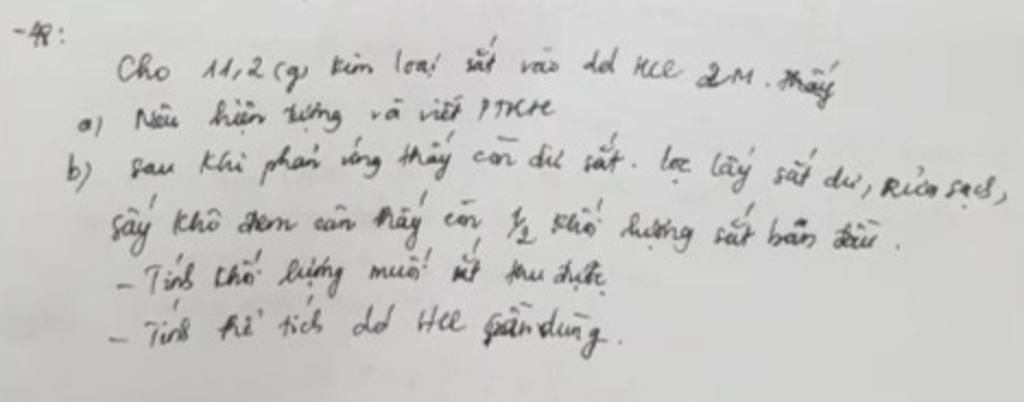 Cho 11,2 (g) kim loại sắt vào dd HCl 2M. thấy
a) Nêu hiện tượng và viết PTHH
b) sau khi phản ứng thấy còn dư sắt. lọc lấy sắt dư, rửa sạch,
sấy khô đem cân thấy còn 1/2 khối lượng sắt ban đầu.
- Tính khối lượng muối sắt thu được
- Tính thể tích dd HCl cần dùng.